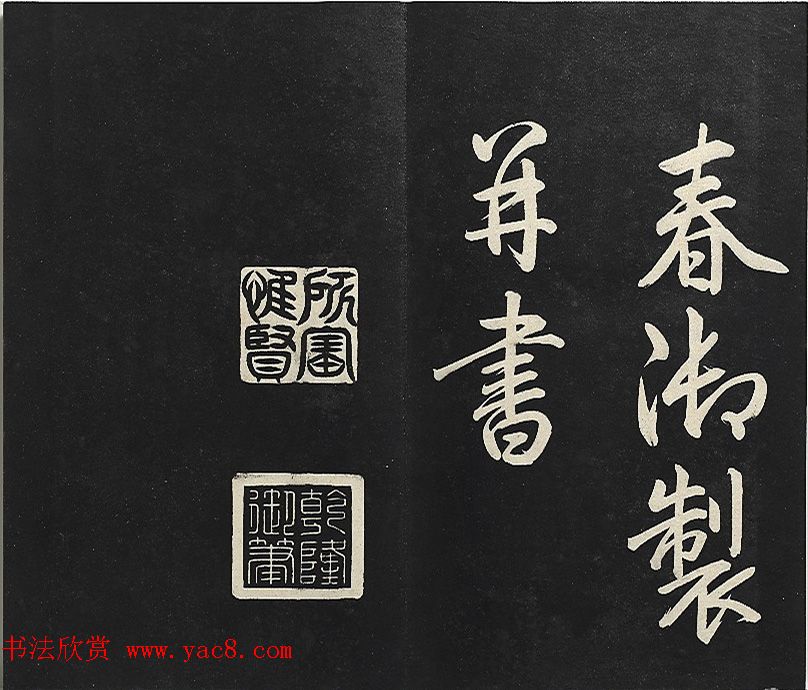 春御製
并書
所寶
惟賢
乾隆
御筆
书法欣赏 www.yac8.com